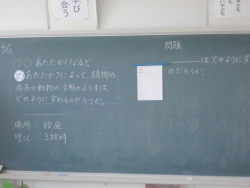 学び
合う
○○あたたかくなると
あたたかさによって、植物の
成長や動物の活動のようすは、
どのように変わるのだろうか。
場所 校庭
時こく 3校時
問題
は、どのように変
のだろうか。